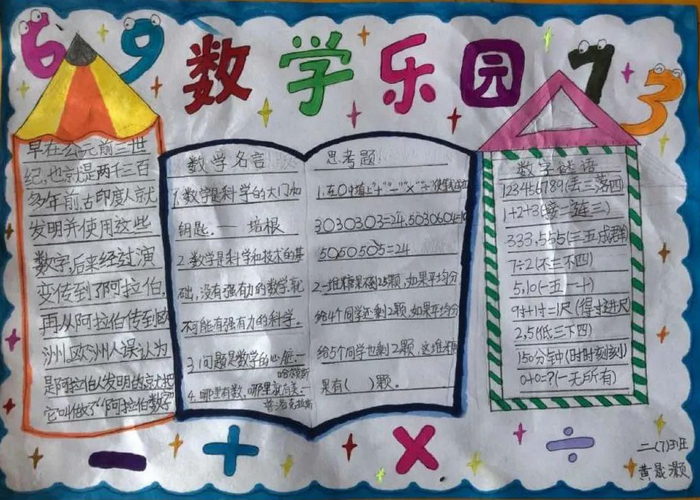 6 9 数学乐园 7 3
早在公元前三世
纪,也就是两千三百
多年前古印度人就
发明并使用这些
数字,后来经过演
变传到了阿拉伯,
再从阿拉伯传到欧
洲,欧洲人误认为
是阿拉伯人发明的,就把
它叫做了“阿拉伯数字”
数学名言
1.数学是科学的大门和
钥匙.—— 培根
2.数学是科学和技术的基
础,没有强有力的数学,就
不可能有强有力的科学。
3.问题是数学的心脏—
哈莫斯
4.哪里有数,哪里就有美—
普洛克拉斯
思考题
1.在○中填上“+”“-”“×”“÷”
3○3○3○3=24,5○3○6○4
5○5○5○5=24
2.一堆糖果不到25颗,如果平均分
给4个同学还剩2颗,如果平均分
给5个同学也剩2颗,这堆糖
果有( )颗。
数字谜语
123456789(丢三落四)
1+2+3(接二连三)
333,555(三五成群)
7÷2(不三不四)
5,10(一五一十)
9寸+1寸=1尺(得寸进尺)
2,5(低三下四)
15分钟(时时刻刻)
0+0=?(一无所有)
- + × ÷
二(7)班
黄晟灏